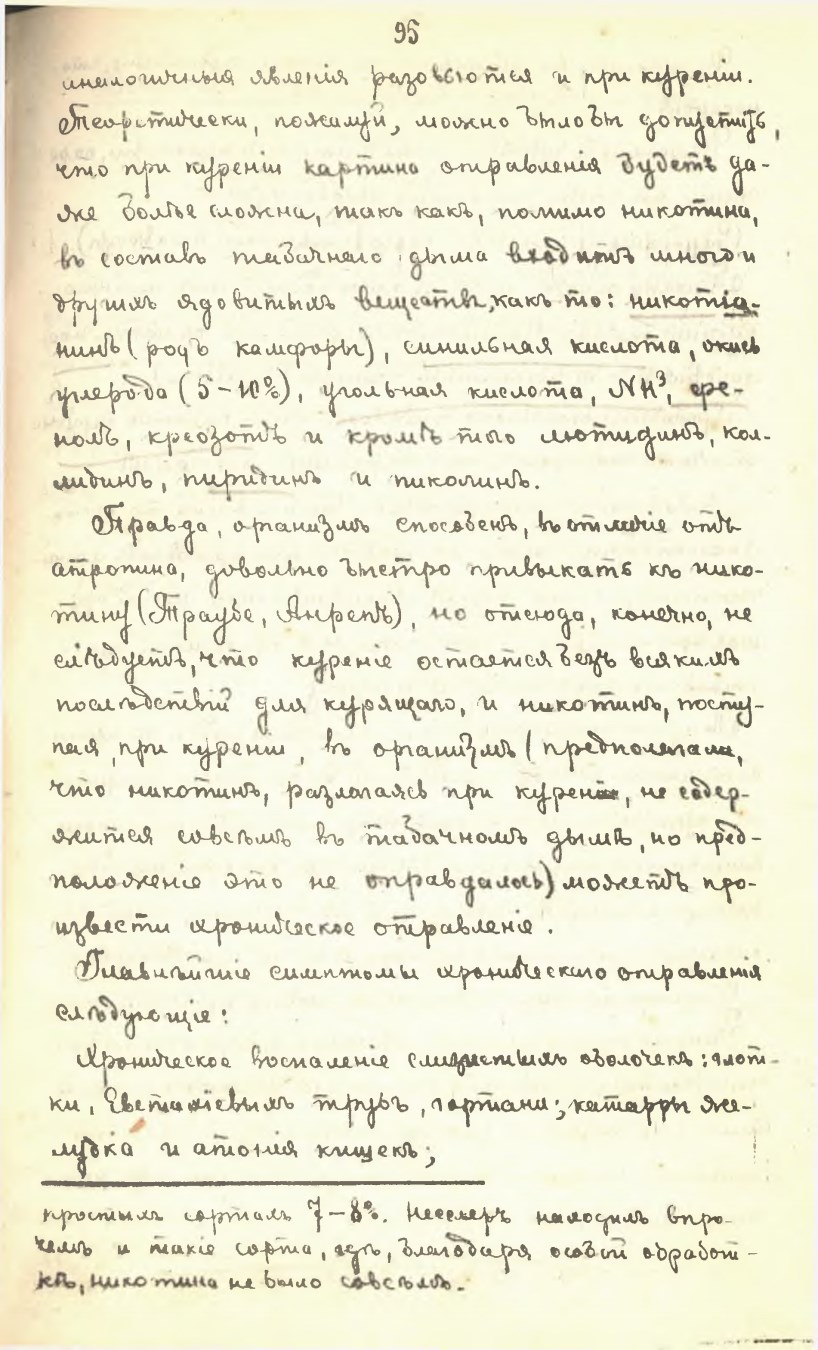 95
аналогичныя явленія разовьются и при куреніи.
Теоретически, пожалуй, можно было бы допустить,
что при куреніи картина отравленія будетъ да-
же болѣе сложна, такъ какъ, помимо никотина,
въ составъ табачнаго дыма входитъ много и
другихъ ядовитыхъ веществъ, какъ то: никотіа-
нинъ (родъ камфоры), синильная кислота, окись
углерода (5–10%), угольная кислота, NH³, фе-
нолъ, креозотъ и кромѣ того лютидинъ, кол-
лидинъ, пиридинъ и пиколинъ.
Правда, организмъ способенъ, въ отличіе отъ
атропина, довольно быстро привыкать къ нико-
тину (Траубе, Анрепъ), но отсюда, конечно, не
слѣдуетъ, что куреніе остается безъ всякихъ
послѣдствій для курящаго, и никотинъ, посту-
пая, при куреніи, въ организмъ (предполагали,
что никотинъ, разлагаясь при куреніи, не содер-
жится совсѣмъ въ табачномъ дымѣ, но пред-
положеніе это не оправдалось) можетъ про-
извести хроническое отравленіе.
Главнѣйшіе симптомы хроническаго отравленія
слѣдующіе:
Хроническое воспаленіе слизистыхъ оболочекъ: глот-
ки, Евстахіевыхъ трубъ, гортани; катарры же-
лудка и атонія кишекъ;
простыхъ сортахъ 7–8%. Несслеръ находилъ впро-
чемъ и такіе сорта, гдѣ, благодаря особой обработ-
кѣ, никотина не было совсѣмъ.